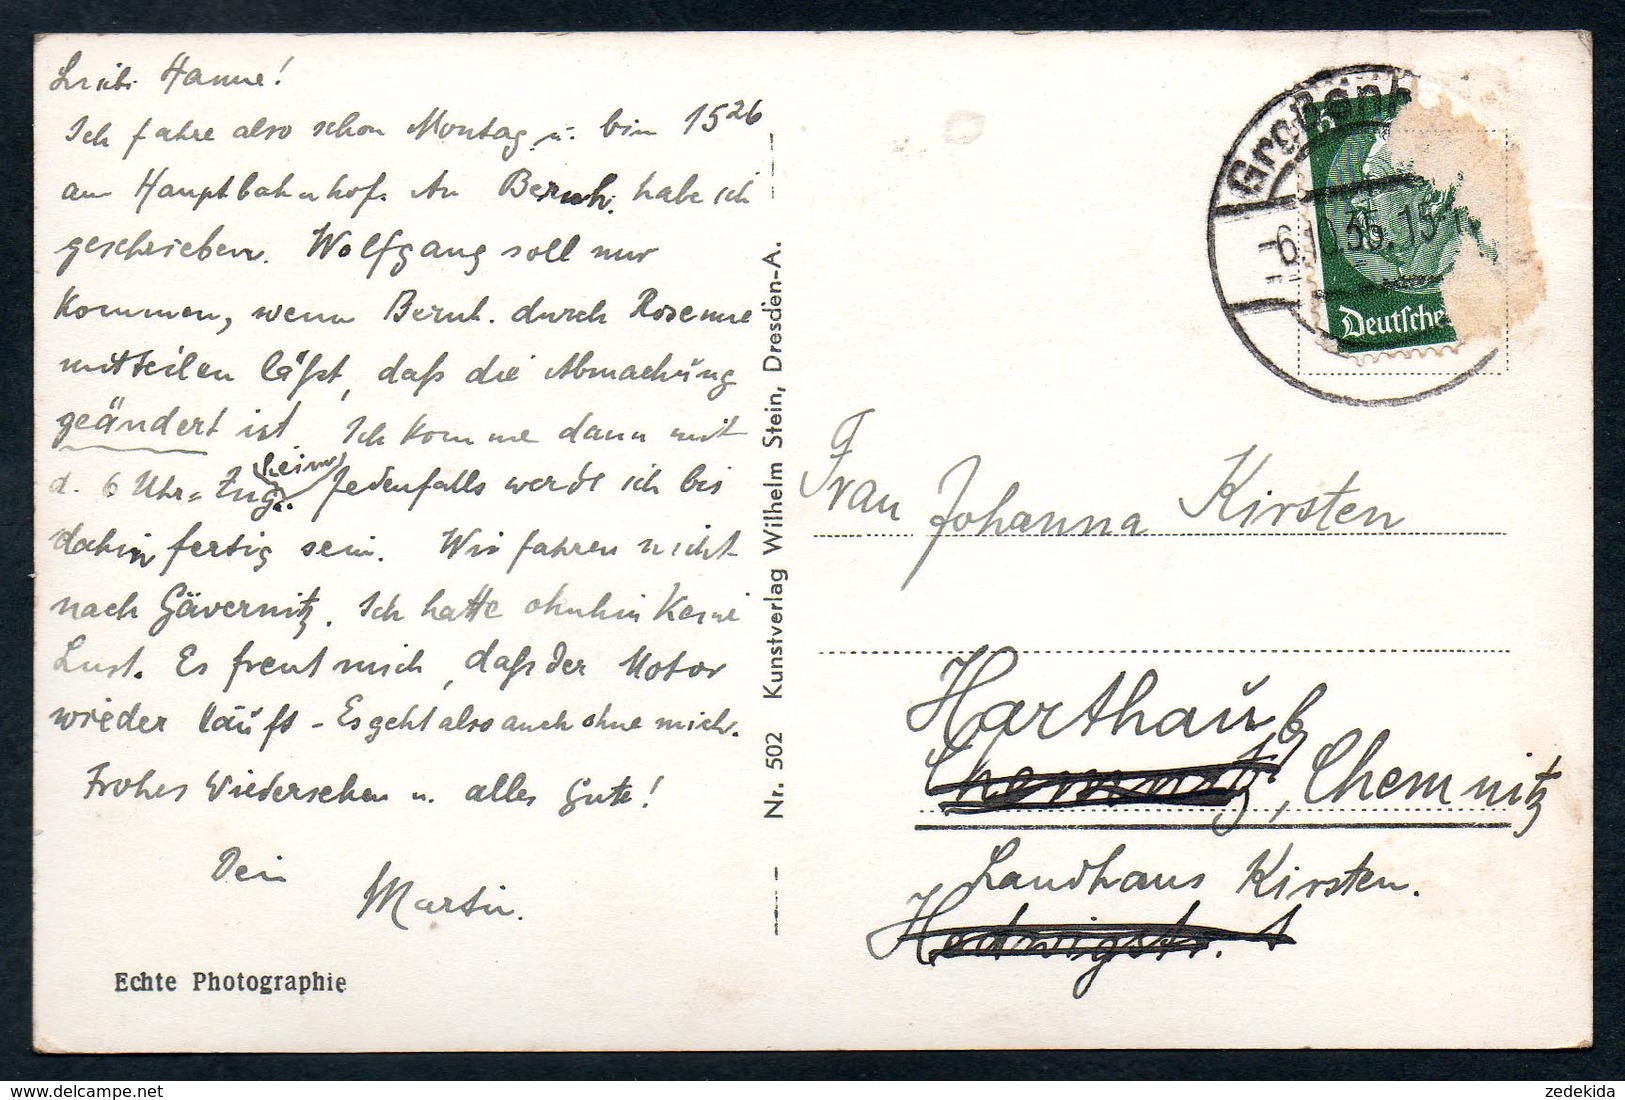 Liebe Hanne!
Ich fahre also schon Montag u. bin 15²⁶
am Hauptbahnhof. An Bernh. habe ich
geschrieben. Wolfgang soll nur
kommen, wenn Bernh. durch Rosenne
mitteilen läßt, daß die Abmachung
geändert ist. Ich komme dann mit
d. 6 Uhr-Zug heim. Jedenfalls werde ich bis
dahin fertig sein. Wir fahren nicht
nach Gävernitz. Ich hatte ohnhin keine
Lust. Es freut mich, daß der Motor
wieder läuft - Es geht also auch ohne mich.
Frohes Wiedersehen u. alles Gute!
Dein
Martin.
Echte Photographie
Nr. 502 Kunstverlag Wilhelm Stein, Dresden-A.
Großenh
Deutsche
Frau Johanna Kirsten
Harthau b.
Chemnitz, Chemnitz
Landhaus Kirsten.
Hedwigstr. 1
www.delcampe.net
zedekida